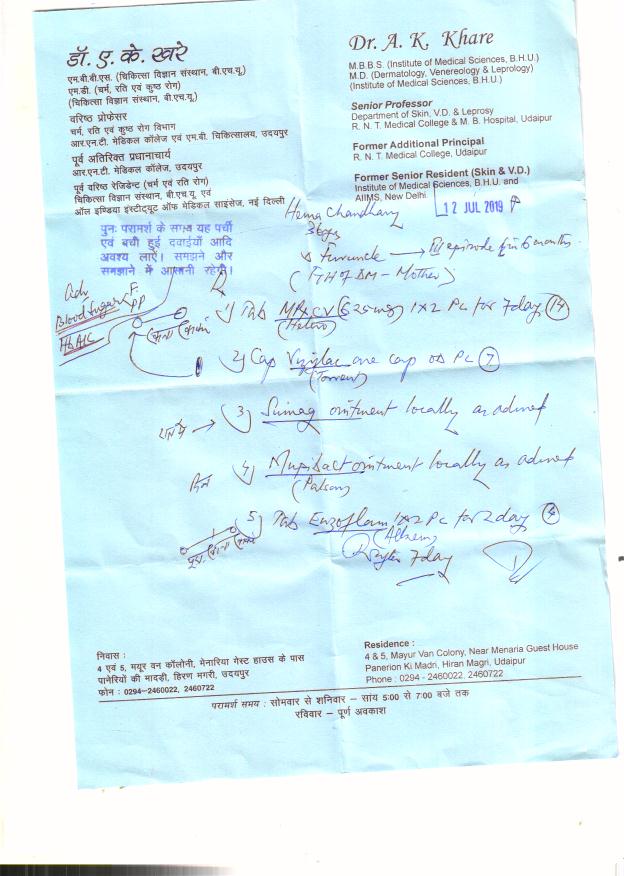 डॉ. ए. के. खरे
एम.बी.बी.एस. (चिकित्सा विज्ञान संस्थान, बी.एच.यू.)
एम.डी. (चर्म, रति एवं कुष्ठ रोग)
(चिकित्सा विज्ञान संस्थान, बी.एच.यू.)
वरिष्ठ प्रोफेसर
चर्म, रति एवं कुष्ठ रोग विभाग
आर.एन.टी. मेडिकल कॉलेज एवं एम.बी. चिकित्सालय, उदयपुर
पूर्व अतिरिक्त प्रधानाचार्य
आर.एन.टी. मेडिकल कॉलेज, उदयपुर
पूर्व वरिष्ठ रेजिडेन्ट (चर्म एवं रति रोग)
चिकित्सा विज्ञान संस्थान, बी.एच.यू. एवं
ऑल इण्डिया इंस्टीट्यूट ऑफ मेडिकल साइंसेज, नई दिल्ली
Dr. A. K. Khare
M.B.B.S. (Institute of Medical Sciences, B.H.U.)
M.D. (Dermatology, Venereology & Leprology)
(Institute of Medical Sciences, B.H.U.)
Senior Professor
Department of Skin, V.D. & Leprosy
R. N. T. Medical College & M. B. Hospital, Udaipur
Former Additional Principal
R. N. T. Medical College, Udaipur
Former Senior Resident (Skin & V.D.)
Institute of Medical Sciences, B.H.U. and
AIIMS, New Delhi.
12 JUL 2019
Hema Chandhary
पुनः परामर्श के समय यह पर्ची
एवं बची हुई दवाईयाँ आदि
अवश्य लाऐं। समझने और
समझाने में आसानी रहेगी।
Furuncle → episode in 6 months
(F/H of DM - Mother)
Adv
Blood Sugar F PP
HbA1C
1) Tab CV (625mg) 1x2 PC for 7day (14)
(Hetero)
खाना
2) Cap Vizylac one cap OD PC (7)
(Torrent)
3) Sumag ointment locally as advised
दिन 4) Mupibact ointment locally as advised
5) Tab Enzoflam 1x2 PC for 2 day (4)
(Alkem)
खाना
7day
निवास :
4 एवं 5, मयूर वन कॉलोनी, मेनारिया गेस्ट हाउस के पास
पानेरियों की मादड़ी, हिरण मगरी, उदयपुर
फोन : 0294-2460022, 2460722
Residence :
4 & 5, Mayur Van Colony, Near Menaria Guest House
Panerion Ki Madri, Hiran Magri, Udaipur
Phone : 0294 - 2460022, 2460722
परामर्श समय : सोमवार से शनिवार – सांय 5:00 से 7:00 बजे तक
रविवार – पूर्ण अवकाश